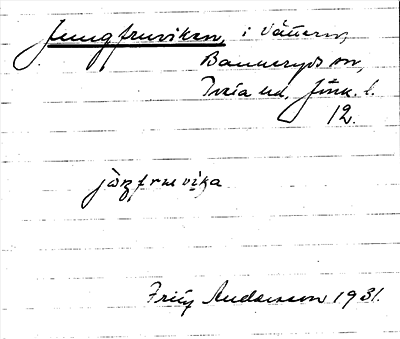 Jungfruviken, i Vättern,
Bankeryds sn,
Tveta hd, Jönk. l.
12.
jöŋfruvika
Fritz Andersson 1931.